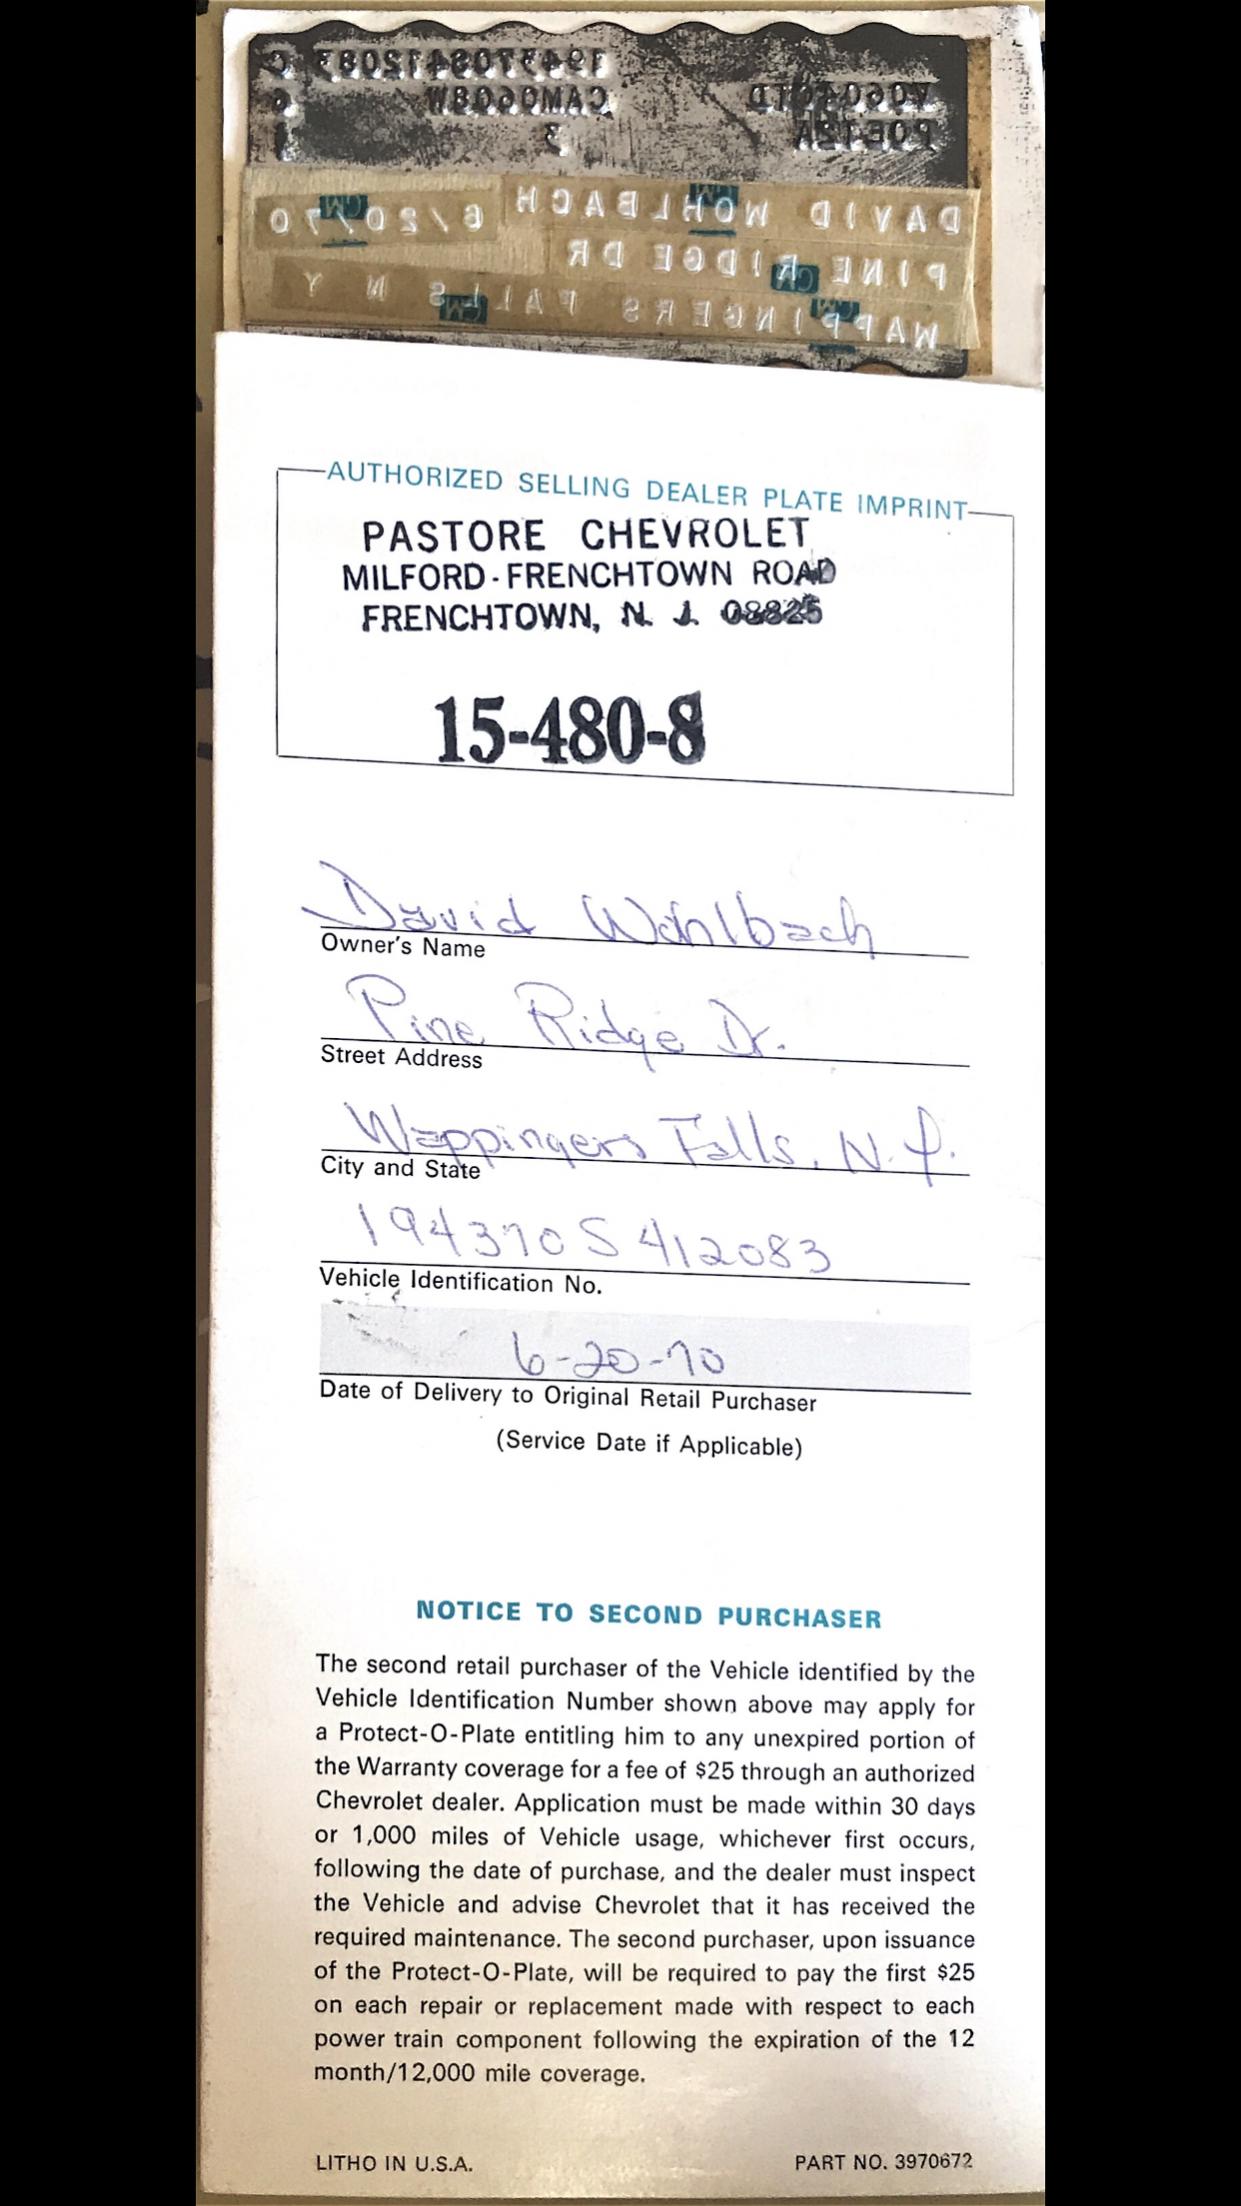 194370S412083 C
6
3 1
DAVID WOHLBACH 6/20/70
PINE RIDGE DR
WAPPINGERS FALLS N Y
AUTHORIZED SELLING DEALER PLATE IMPRINT
PASTORE CHEVROLET
MILFORD-FRENCHTOWN ROAD
FRENCHTOWN, N. J. 08825
15-480-8
David Wohlbach
Owner's Name
Pine Ridge Dr.
Street Address
Wappingers Falls, N.Y.
City and State
194370S412083
Vehicle Identification No.
6-20-70
Date of Delivery to Original Retail Purchaser
(Service Date if Applicable)
NOTICE TO SECOND PURCHASER
The second retail purchaser of the Vehicle identified by the
Vehicle Identification Number shown above may apply for
a Protect-O-Plate entitling him to any unexpired portion of
the Warranty coverage for a fee of $25 through an authorized
Chevrolet dealer. Application must be made within 30 days
or 1,000 miles of Vehicle usage, whichever first occurs,
following the date of purchase, and the dealer must inspect
the Vehicle and advise Chevrolet that it has received the
required maintenance. The second purchaser, upon issuance
of the Protect-O-Plate, will be required to pay the first $25
on each repair or replacement made with respect to each
power train component following the expiration of the 12
month/12,000 mile coverage.
LITHO IN U.S.A. PART NO. 3970672